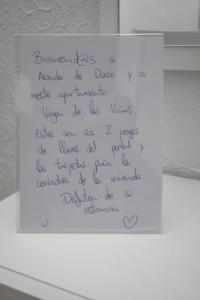 Bienvenid@s a
Aranda de Duero y a
neste apartamento
Virgen de las Viñas.
Estos son sus 2 juegos
de llaves del portal y
las tarjetas para la
cerradura de la vivienda
Disfruten de su
estancia